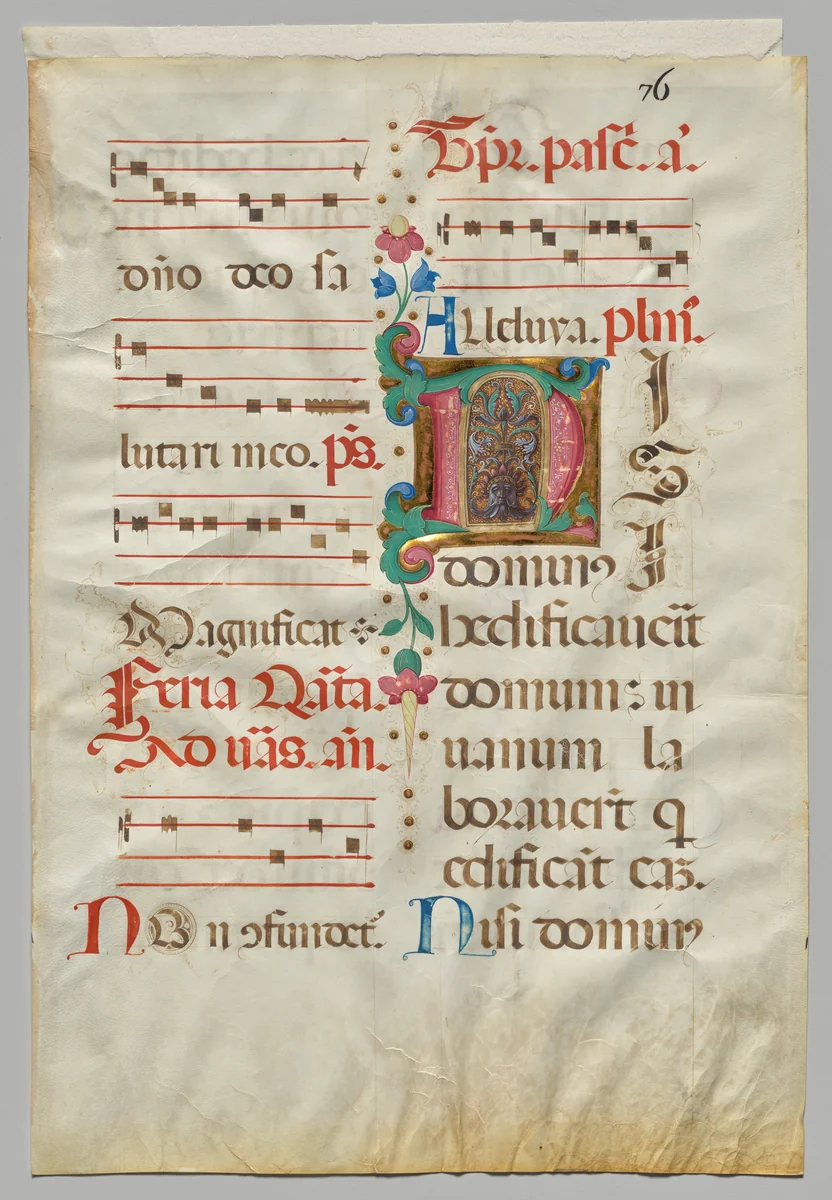 76
dño deo sa
lutari meo. p̃s.
Magnificat
Feria Qãta.
Ad uãs. añ.
NO n ɔfundet᷑.
Tp̃r. pasc̃. a᷑.
Alleluya. plm̃.
NISI
dominꝰ
edificauerit
domum: in
uanum la
borauer̃t q
edificãt eaʒ.
Nisi dominꝰ